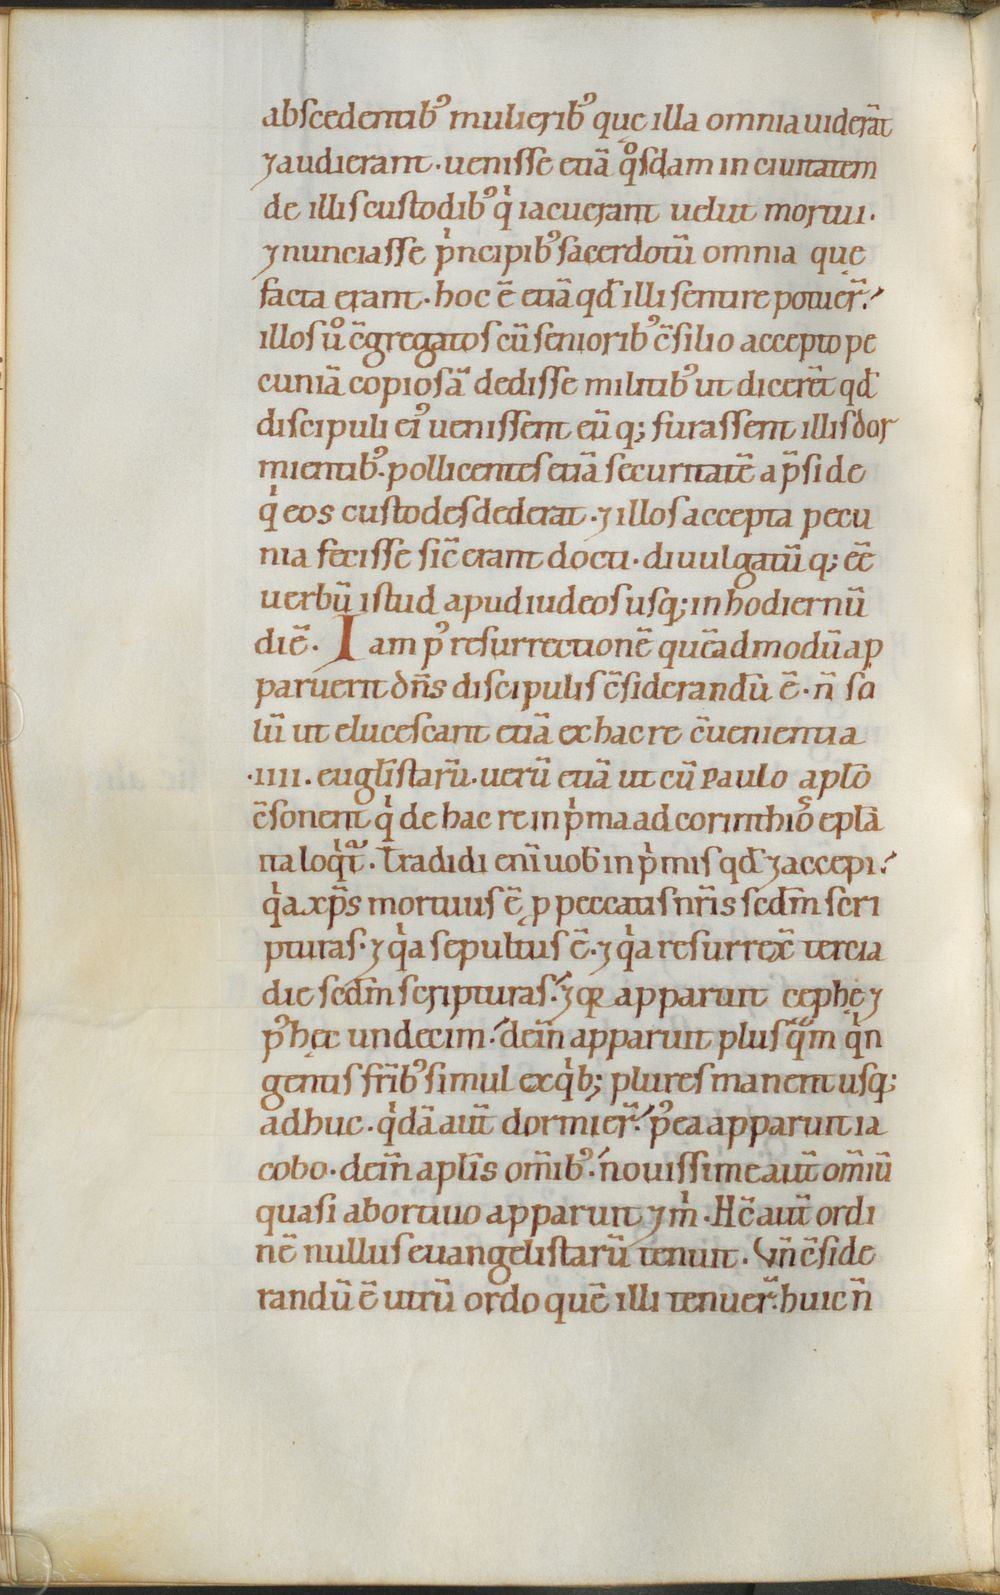 abscedentib᷒ mulierib᷒ quę illa omnia uiderāt
⁊ audierant · uenisse etiā qͦsdam in ciuitatem
de illis custodib᷒ qͥ iacuerant uelut mortui ·
⁊ nunciasse pͥncipib᷒ sacerdotū omnia quę
facta erant · hoc ē etiā qđ illi sentire potuer̄ ·
illos uͦ c̄gregatos cūseniorib᷒ c̄silio accepto pe
cuniā copiosā dedisse militib᷒ ut dicerēt qđ
discipuli ei᷒ uenissent eūq; furassent illis dor
mientib᷒ · pollicentes etiā securitatē a p̄side
qͥ eos custodes dederat · ⁊ illos accepta pecu
nia fecisse sic̄ erant docti · diuulgatūq; eē
uerbū istud apud iudeos usq; in hodiernū
diē · Iam p᷒ resurrectionē quēadmodū ap
paruerit dn̄s discipulis c̄siderandū ē · n̄ so
lū ut elucescant etiā ex hac re c̄uenientia
· IIII · eugl̄istarū · uerū etiā ut cū Paulo apl̄o
c̄sonent qͥ de hac re in pͥma ad corinthios epl̄a
ita loqͥt᷑ · Tradidi enī uob̄ in pͥmis qđ ⁊ accepi ·
qͥa xp̄s mortuus ē p peccatis nr̄is scđm scri
pturas · ⁊ qͥa sepultus ē · ⁊ qͥa resurrex̄ tercia
die scđm scripturas · ⁊ qꝛ apparuit cephę ⁊
p᷒ hęc undecim · dein̄ apparuit plusqͣm qͥn
gentis fr̄ib᷒ simul ex qͥb; plures manent usq;
adhuc · qͥdā aut̄ dormier̄ · p᷒ea apparuit ia
cobo · dein̄ apl̄is om̄ib᷒ · nouissime aut̄ om̄iū
quasi abortiuo apparuit ⁊ mͥ · Hc̄ aut̄ ordi
nē nullus euangelistarū tenuit · Vn̄ c̄side
randū ē utrū ordo quē illi tenuer̄ · huic n̄